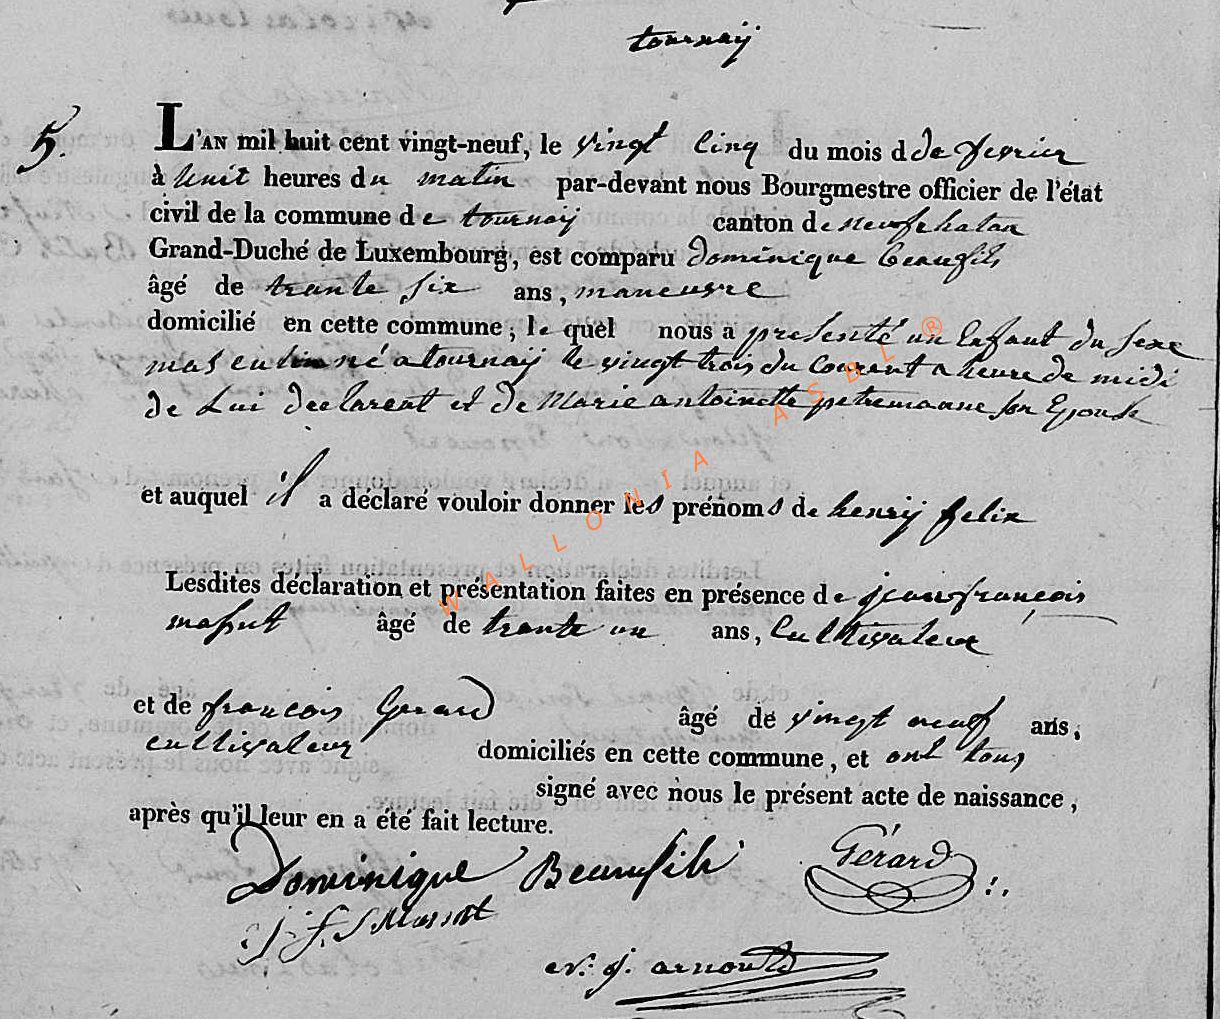 tournaij
5.
L'AN mil huit cent vingt-neuf, le vingt cinq du mois d de fevrier
à huit heures du matin par-devant nous Bourgmestre officier de l'état
civil de la commune de tournaij canton de neufchatau
Grand-Duché de Luxembourg, est comparu dominique beaufils
âgé de trante six ans, maneuvre
domicilié en cette commune, lequel nous a presenté un Enfant du sexe
masculin né a tournaij le vingt trois du Courant a heure de midi
de Lui declarent et de Marie antoinette petremanne son Epouse
et auquel il a déclaré vouloir donner les prénoms de henrij felix
Lesdites déclaration et présentation faites en présence de jean françois
massut âgé de trante un ans, Cultivateur
et de françois Gerard âgé de vingt neuf ans,
cultivateur domiciliés en cette commune, et ont tous
signé avec nous le présent acte de naissance,
après qu'il leur en a été fait lecture.
Dominique Beaufils Gérard
J. F. J Massut
N: J. arnould
WALLONIA ASBL ®